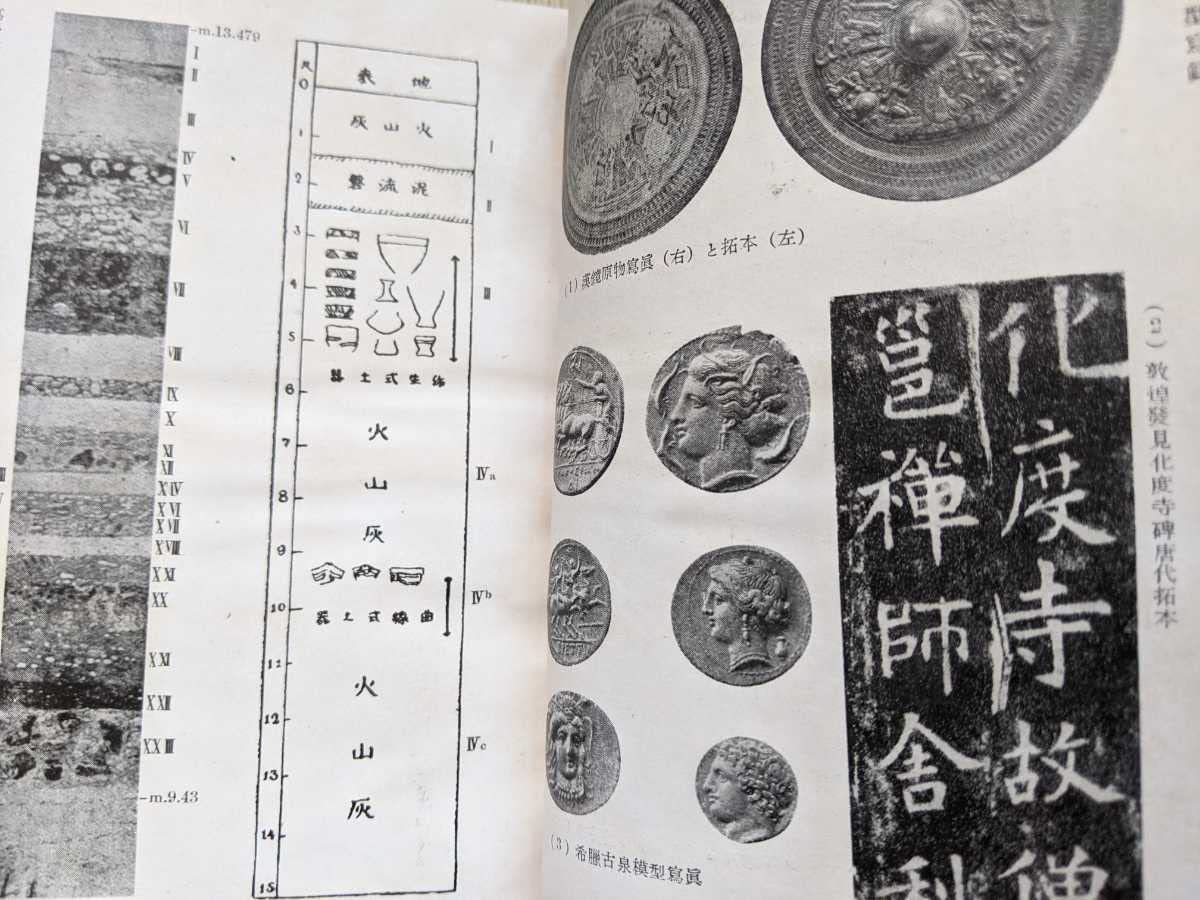 m.13.479
I
II
III
IV
V
VI
VII
VIII
IX
X
XI
XII
XIV
XVI
XVII
XVIII
XXI
XX
XXI
XXII
XXIII
m.9.43
尺
0
1
2
3
4
5
6
7
8
9
10
11
12
13
14
15
表地
灰山火
磐流泥
器土式生弥
火山灰
器土式縁曲
火山灰
I
II
III
IVa
IVb
IVc
(1)漢鏡原物寫眞(右)と拓本(左)
(2)敦煌發見化度寺碑唐代拓本
化度寺故僧
邕禪師舎利
(3)希臘古泉模型寫眞